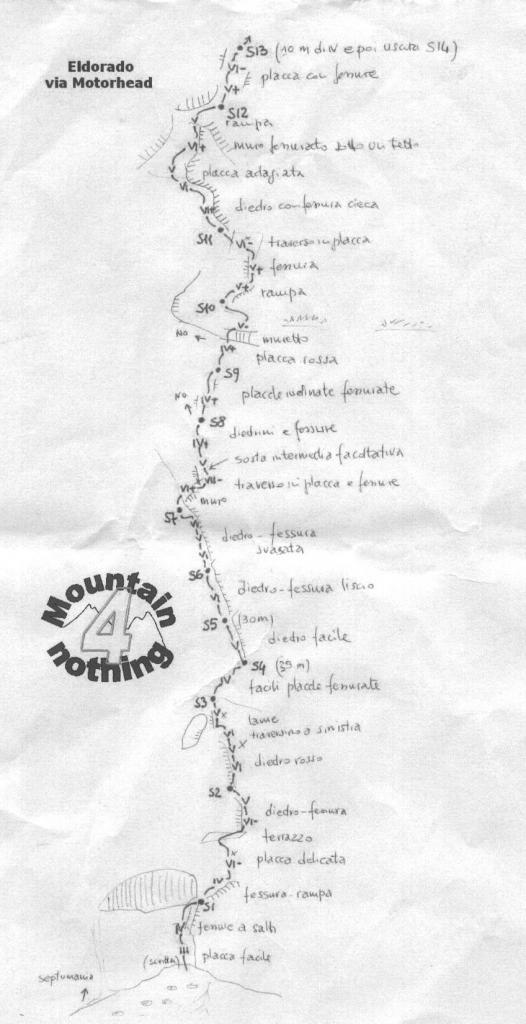 Eldorado
via Motorhead
S13 (10 m di IV e poi uscita S14)
VI-
placca con fessure
V+
S12
V
rampa
VI+
muro fessurato sotto un tetto
V
placca adagiata
VI-
VI+
diedro con fessura cieca
S11
VI-
traverso in placca
V+
fessura
V+
rampa
S10
V-
NO
muretto
IV+
placca rossa
S9
IV+
placche inclinate fessurate
NO
S8
diedrini e fessure
IV+
V
sosta intermedia facoltativa
VII-
VI+
traverso in placca e fessure
muro
S7
V
diedro-fessura
svasata
S6
diedro-fessura liscio
VI
S5
(30m)
diedro facile
V
S4 (35 m)
IV
facili placche fessurate
S3
V
lame
traversino a sinistra
VI
VI
diedro rosso
S2
V
diedro-fessura
VI-
terrazzo
placca delicata
VI-
IV
fessura-rampa
S1
IV
fessure a salti
III
(scritta)
placca facile
septumania
Mountain
4
nothing